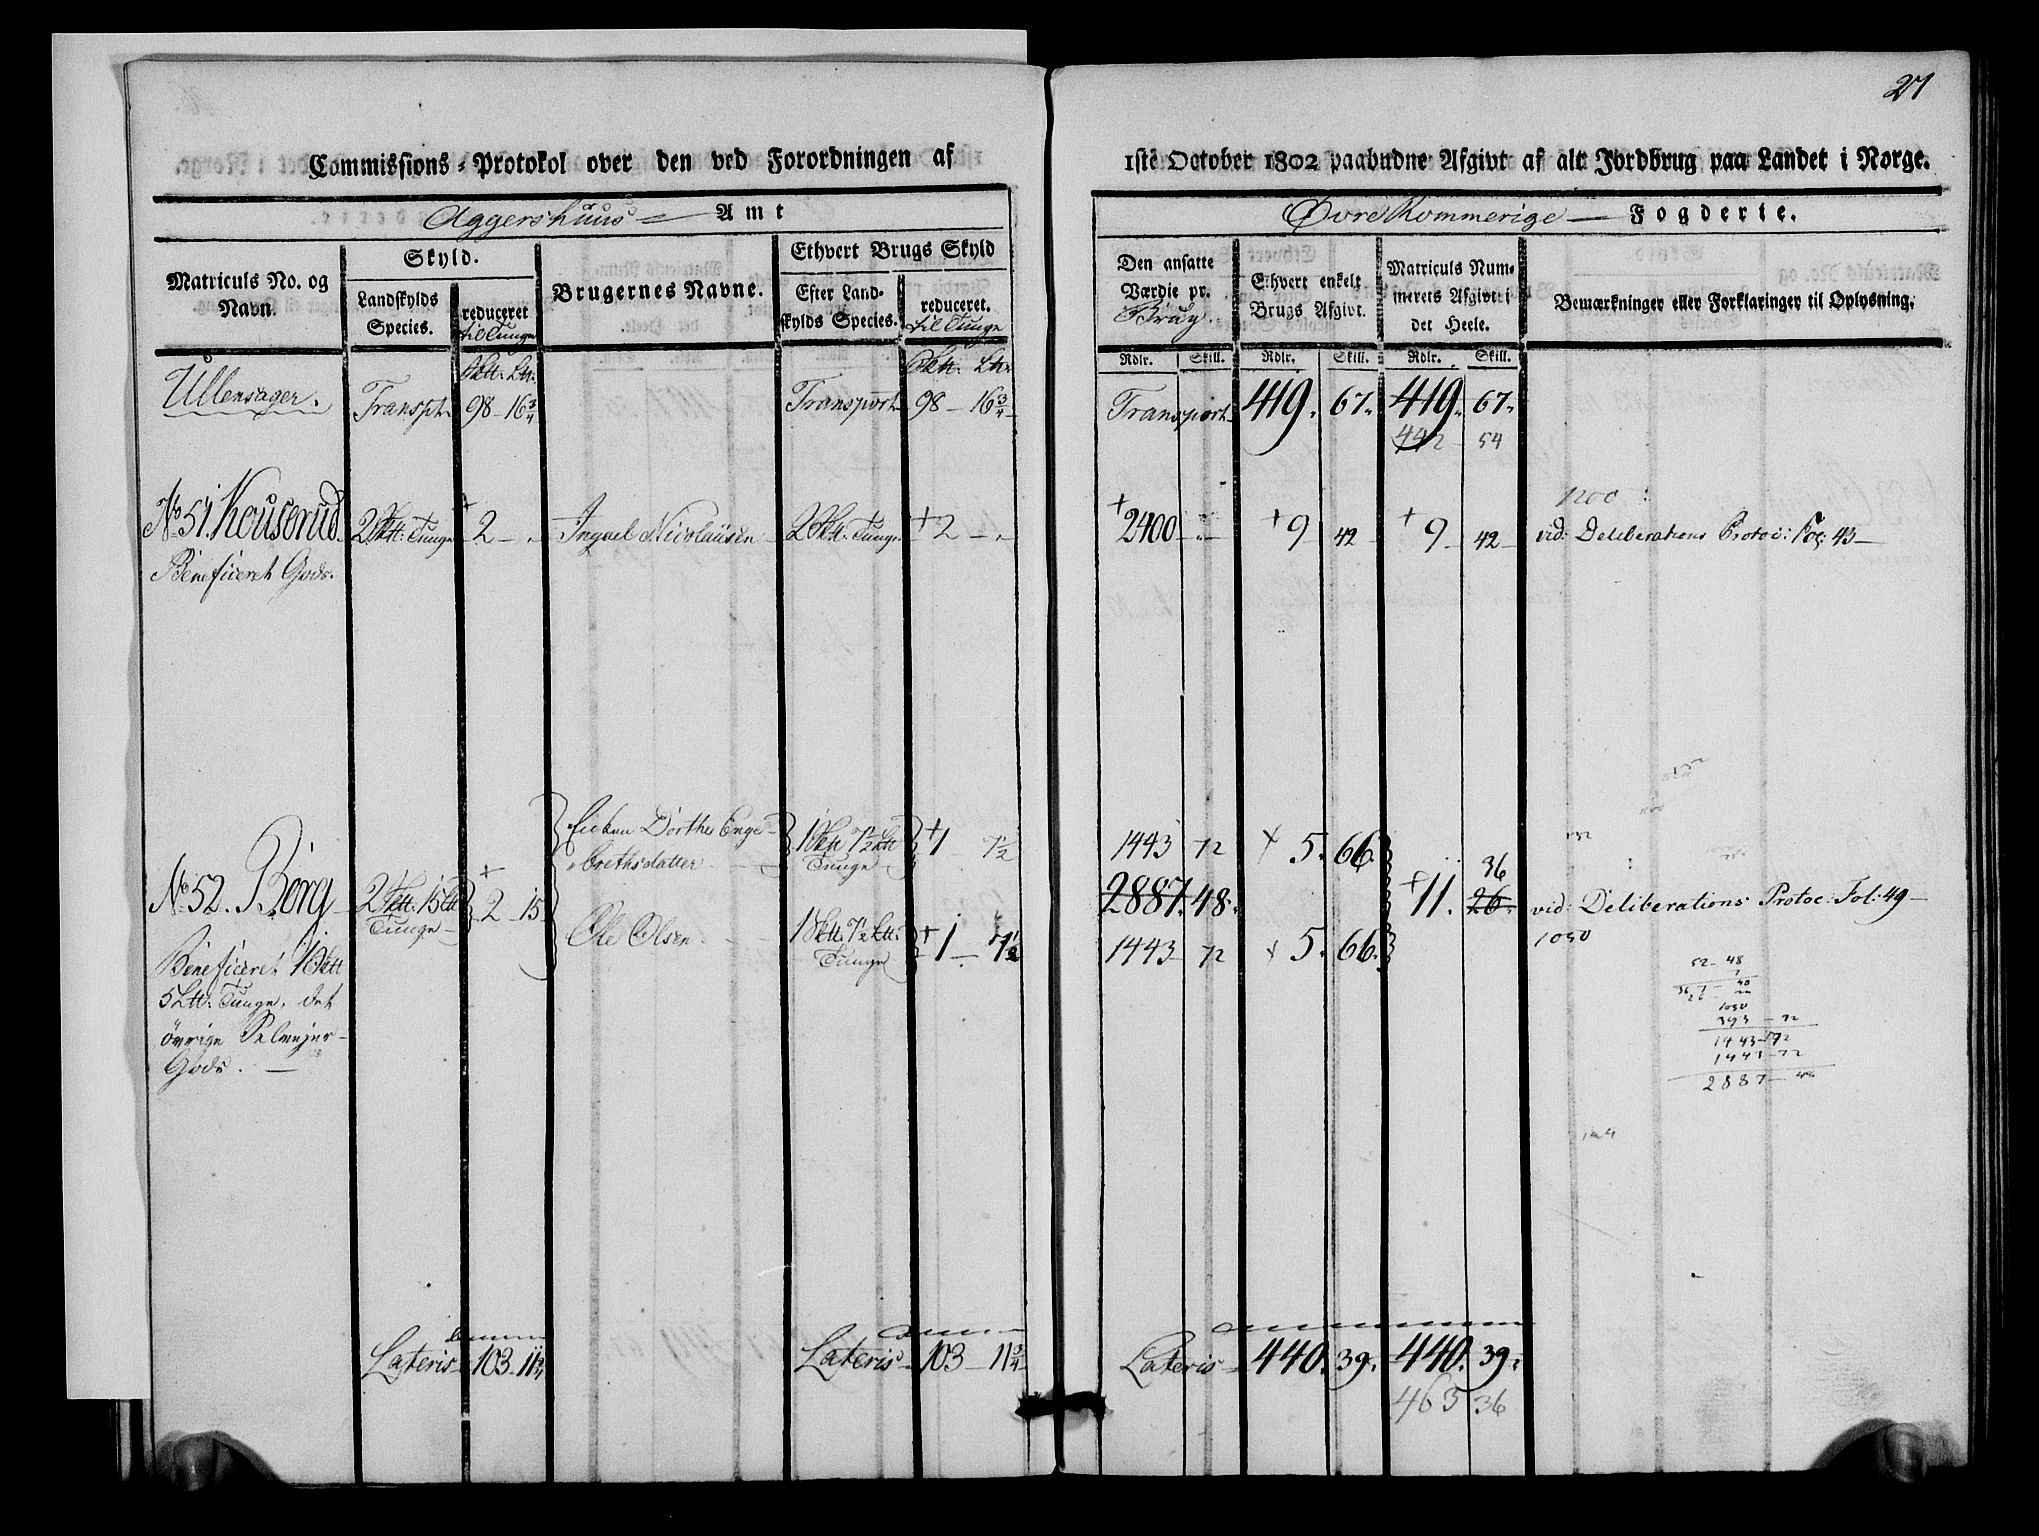 27
Commissions-Protokol over den ved Forordningen af 1ste October 1802 paabudne Afgivt af alt Jordbrug paa Landet i Norge.
Aggershuus Amt
Øvre Rommerige Fogderie.
Matriculs No. og Navn.
Skyld.
Landskylds Species.
reduceret til Tunge
Brugernes Navne.
Ethvert Brugs Skyld
Efter Landskylds Species.
reduceret. til Tunge
Den ansatte Værdie pr. Brug.
Ethvert enkelt Brugs Afgivt.
Matriculs Nummerets Afgivt i det Heele.
Bemærkninger eller Forklaringer til Oplysning.
Rdlr. Skill. Rdlr. Skill. Rdlr. Skill.
Ullensager. Transpt 98 - 16 3/4 Transport 98 - 16 3/4 Transport 419. 67. 419. 67.
442 54
1200
No 51. 2 Skt: Tunge + 2 - Nicolausen 2 Skt: Tunge + 2 - + 2400 + 9 42 + 9 42 vid: Deliberations Protoc: Fol: 43
Beneficeret Gods.
Dorthe Enge- 1 Skt 7½ Lt + 1 - 7½ 1443 72 + 5. 66.
brethsdatter Tunge
36
No 52. Borg 2 Skt. 15 Lt + 2 - 15 2887. 48. + 11. 26. vid: Deliberations Protoc: Fol: 49
Tunge
Ole Olsen 1 Skt. 7½ Lt: + 1 - 7½ 1443 72 + 5. 66. 1050
Tunge
Beneficeret 1 Skt
5 Lt: Tunge, det
övrige Selveyer
Gods.
52 - 48
1050
393 - 72
1443 - 72
1443 - 72
2887 - 48
Lateris 103 - 11 3/4 Lateris 103 - 11 3/4 Lateris 440. 39. 440. 39.
463 36